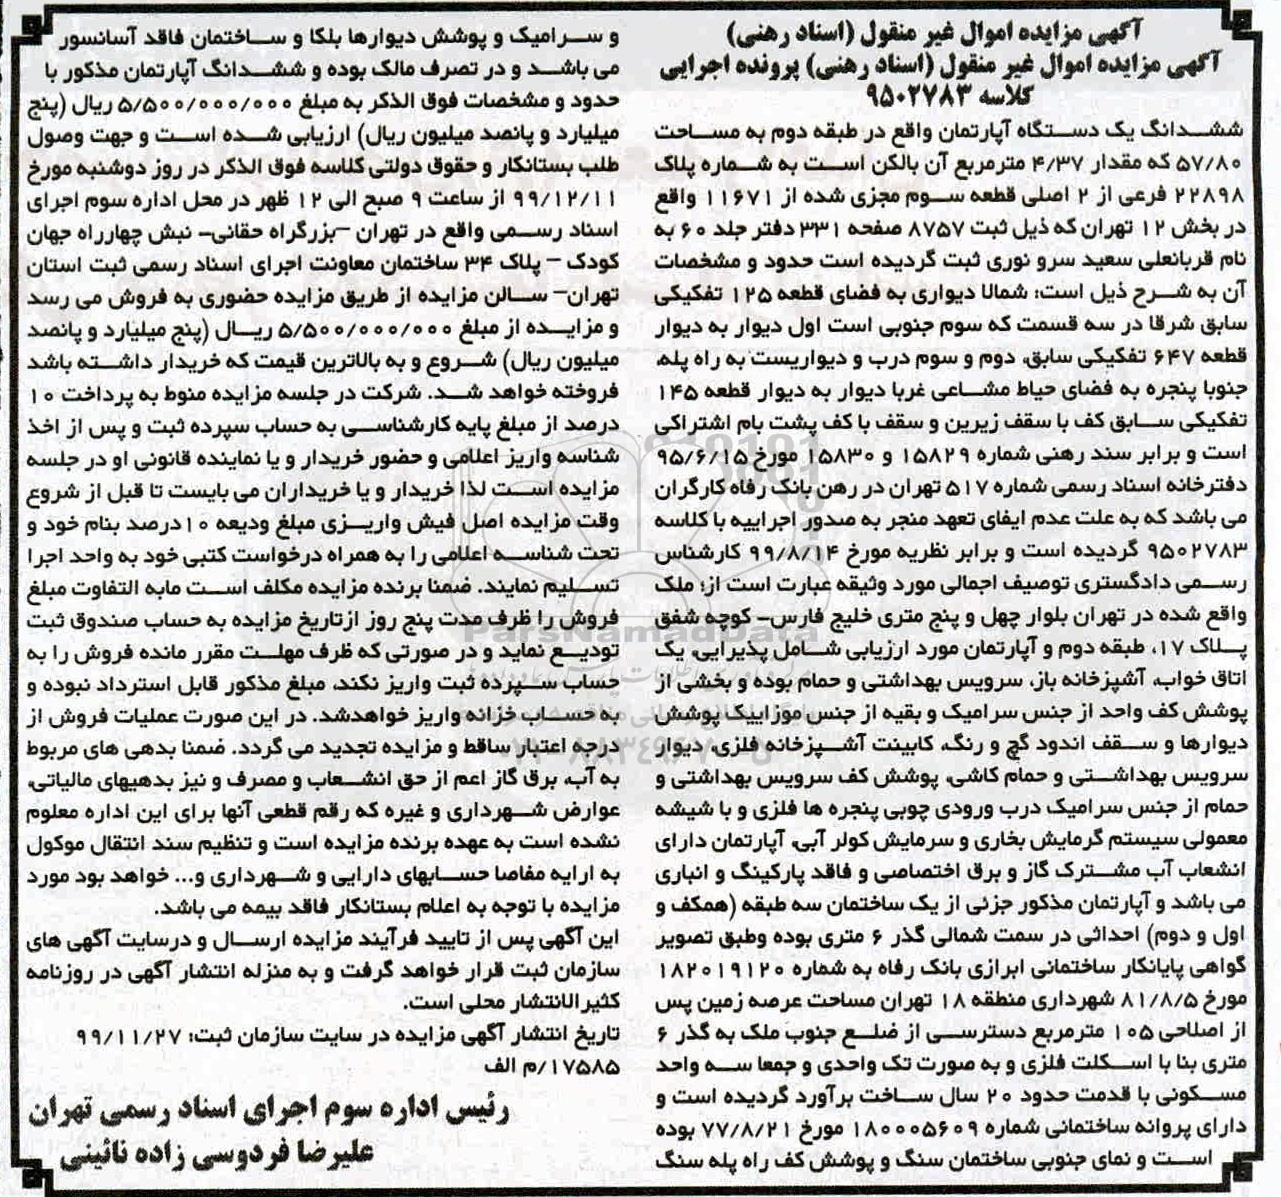 آگهی مزایده اموال غیر منقول (اسناد رهنی)
آگهی مزایده اموال غیر منقول (اسناد رهنی) پرونده اجرایی
کلاسه ۹۵۰۲۷۸۳
ششدانگ یک دستگاه آپارتمان واقع در طبقه دوم به مساحت
۵۷/۸۰ که مقدار ۴/۳۷ مترمربع آن بالکن است به شماره پلاک
۲۲۸۹۸ فرعی از ۲ اصلی قطعه سوم مجزی شده از ۱۱۶۷۱ واقع
در بخش ۱۲ تهران که ذیل ثبت ۸۷۵۷ صفحه ۳۳۱ دفتر جلد ۶۰ به
نام قربانعلی سعید سرو نوری ثبت گردیده است حدود و مشخصات
آن به شرح ذیل است: شمالا دیواری به فضای قطعه ۱۲۵ تفکیکی
سابق شرقا در سه قسمت که سوم جنوبی است اول دیوار به دیوار
قطعه ۶۴۷ تفکیکی سابق، دوم و سوم درب و دیواریست به راه پله،
جنوبا پنجره به فضای حیاط مشاعی غربا دیوار به دیوار قطعه ۱۴۵
تفکیکی سابق کف با سقف زیرین و سقف با کف پشت بام اشتراکی
است و برابر سند رهنی شماره ۱۵۸۲۹ و ۱۵۸۳۰ مورخ ۹۵/۶/۱۵
دفترخانه اسناد رسمی شماره ۵۱۷ تهران در رهن بانک رفاه کارگران
می باشد که به علت عدم ایفای تعهد منجر به صدور اجراییه با کلاسه
۹۵۰۲۷۸۳ گردیده است و برابر نظریه مورخ ۹۹/۸/۱۴ کارشناس
رسمی دادگستری توصیف اجمالی مورد وثیقه عبارت است از: ملک
واقع شده در تهران بلوار چهل و پنج متری خلیج فارس- کوچه شفق
پلاک ۱۷، طبقه دوم و آپارتمان مورد ارزیابی شامل پذیرایی، یک
اتاق خواب، آشپزخانه باز، سرویس بهداشتی و حمام بوده و بخشی از
پوشش کف واحد از جنس سرامیک و بقیه از جنس موزاییک پوشش
دیوارها و سقف اندود گچ و رنگ، کابینت آشپزخانه فلزی، دیوار
سرویس بهداشتی و حمام کاشی، پوشش کف سرویس بهداشتی و
حمام از جنس سرامیک درب ورودی چوبی پنجره ها فلزی و با شیشه
معمولی سیستم گرمایش بخاری و سرمایش کولر آبی، آپارتمان دارای
انشعاب آب مشترک گاز و برق اختصاصی و فاقد پارکینگ و انباری
می باشد و آپارتمان مذکور جزئی از یک ساختمان سه طبقه (همکف و
اول و دوم) احداثی در سمت شمالی گذر ۶ متری بوده وطبق تصویر
گواهی پایانکار ساختمانی ابرازی بانک رفاه به شماره ۱۸۲۰۱۹۱۲۰
مورخ ۸۱/۸/۵ شهرداری منطقه ۱۸ تهران مساحت عرصه زمین پس
از اصلاحی ۱۰۵ مترمربع دسترسی از ضلع جنوب ملک به گذر ۶
متری بنا با اسکلت فلزی و به صورت تک واحدی و جمعا سه واحد
مسکونی با قدمت حدود ۲۰ سال ساخت برآورد گردیده است و
دارای پروانه ساختمانی شماره ۱۸۰۰۰۵۶۰۹ مورخ ۷۷/۸/۲۱ بوده
است و نمای جنوبی ساختمان سنگ و پوشش کف راه پله سنگ
و سرامیک و پوشش دیوارها بلکا و ساختمان فاقد آسانسور
می باشد و در تصرف مالک بوده و ششدانگ آپارتمان مذکور با
حدود و مشخصات فوق الذکر به مبلغ ۵/۵۰۰/۰۰۰/۰۰۰ ریال (پنج
میلیارد و پانصد میلیون ریال) ارزیابی شده است و جهت وصول
طلب بستانکار و حقوق دولتی کلاسه فوق الذکر در روز دوشنبه مورخ
۹۹/۱۲/۱۱ از ساعت ۹ صبح الی ۱۲ ظهر در محل اداره سوم اجرای
اسناد رسمی واقع در تهران –بزرگراه حقانی- نبش چهارراه جهان
کودک – پلاک ۳۴ ساختمان معاونت اجرای اسناد رسمی ثبت استان
تهران- سالن مزایده از طریق مزایده حضوری به فروش می رسد
و مزایده از مبلغ ۵/۵۰۰/۰۰۰/۰۰۰ ریال (پنج میلیارد و پانصد
میلیون ریال) شروع و به بالاترین قیمت که خریدار داشته باشد
فروخته خواهد شد. شرکت در جلسه مزایده منوط به پرداخت ۱۰
درصد از مبلغ پایه کارشناسی به حساب سپرده ثبت و پس از اخذ
شناسه واریز اعلامی و حضور خریدار و یا نماینده قانونی او در جلسه
مزایده است لذا خریدار و یا خریداران می بایست تا قبل از شروع
وقت مزایده اصل فیش واریزی مبلغ ودیعه ۱۰درصد بنام خود و
تحت شناسه اعلامی را به همراه درخواست کتبی خود به واحد اجرا
تسلیم نمایند. ضمنا برنده مزایده مکلف است مابه التفاوت مبلغ
فروش را ظرف مدت پنج روز ازتاریخ مزایده به حساب صندوق ثبت
تودیع نماید و در صورتی که ظرف مهلت مقرر مانده فروش را به
حساب سپرده ثبت واریز نکند، مبلغ مذکور قابل استرداد نبوده و
به حساب خزانه واریز خواهدشد. در این صورت عملیات فروش از
درجه اعتبار ساقط و مزایده تجدید می گردد. ضمنا بدهی های مربوط
به آب، برق گاز اعم از حق انشعاب و مصرف و نیز بدهیهای مالیاتی،
عوارض شهرداری و غیره که رقم قطعی آنها برای این اداره معلوم
نشده است به عهده برنده مزایده است و تنظیم سند انتقال موکول
به ارایه مفاصا حسابهای دارایی و شهرداری و... خواهد بود مورد
مزایده با توجه به اعلام بستانکار فاقد بیمه می باشد.
این آگهی پس از تایید فرآیند مزایده ارسال و درسایت آگهی های
سازمان ثبت قرار خواهد گرفت و به منزله انتشار آگهی در روزنامه
کثیرالانتشار محلی است.
تاریخ انتشار آگهی مزایده در سایت سازمان ثبت: ۹۹/۱۱/۲۷
۱۷۵۸۵/م الف
رئیس اداره سوم اجرای اسناد رسمی تهران
علیرضا فردوسی زاده نائینی
ParsNamadData